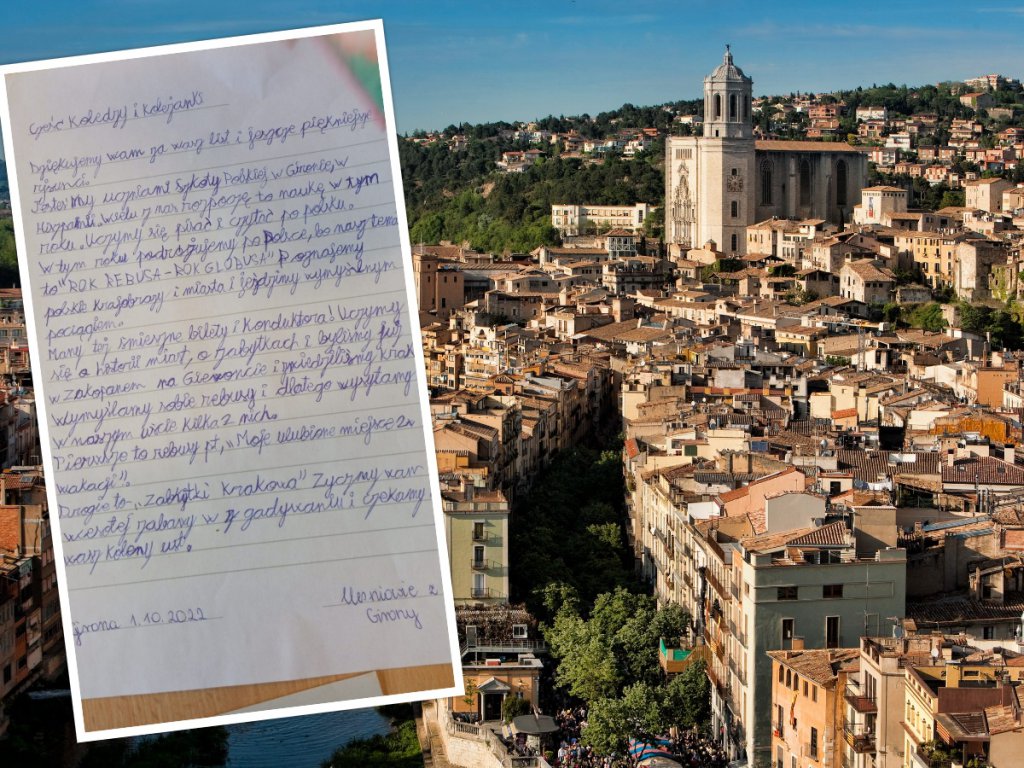 Cześć Koledzy i Koleżanki
Dziękujemy wam za wasz list i jeszcze piękniejsze
rysunki.
Jesteśmy uczniami Szkoły Polskiej w Gironie, w
Hiszpanii. wielu z nas rozpoczę to naukę w tym
roku. Uczymy się pisać i czytać po polsku.
w tym roku podróżujemy po Polsce, bo nasz temat
to "ROK REBUSA-ROK GLOBUSA" Poznajemy
polskie krajobrazy i miasta i jeździmy wymyślonym
pociągiem.
Mamy też śmieszne bilety i Konduktora! Uczymy
się o historii miast, o zabytkach i byliśmy już
w zakopanem na Giewoncie i zwiedziliśmy krak
wymyślamy sobie rebusy i dlatego wysyłamy
w naszym liście kilka z nich.
Pierwsze to rebusy pt, "Moje ulubione miejsce z
wakacji".
Drugie to - "zabytki krakowa" Życzymy wam
wesołej zabawy w zgadywaniu i czekamy
wasz kolejny list.
girona 1.10.2022
Uczniowie z
Girony